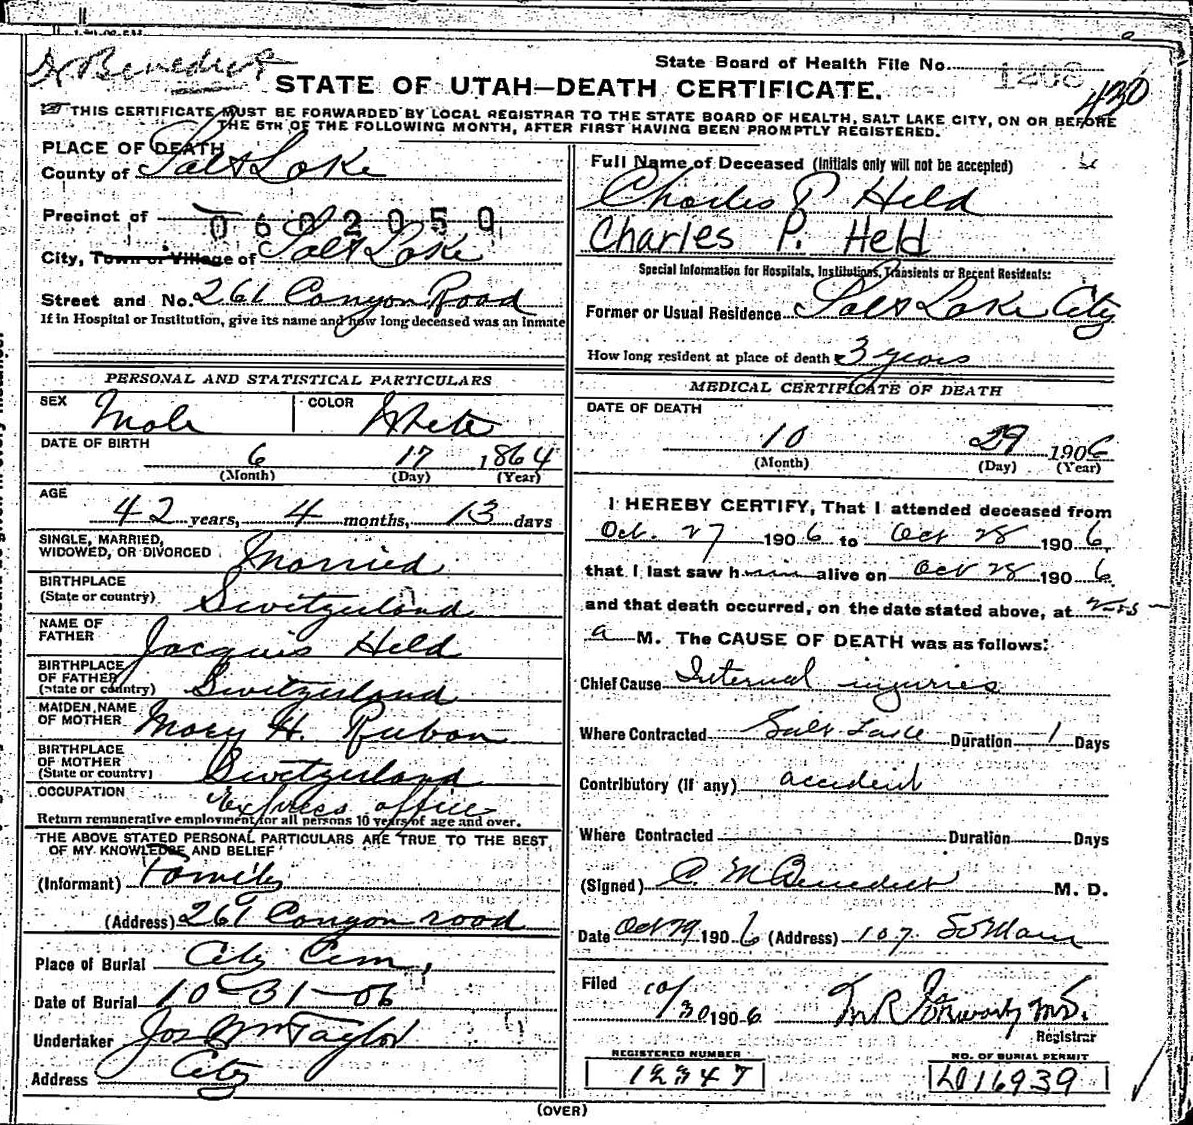 Dr Benedict
State Board of Health File No. 1208
430
STATE OF UTAH—DEATH CERTIFICATE.
THIS CERTIFICATE MUST BE FORWARDED BY LOCAL REGISTRAR TO THE STATE BOARD OF HEALTH, SALT LAKE CITY, ON OR BEFORE
THE 5TH OF THE FOLLOWING MONTH, AFTER FIRST HAVING BEEN PROMPTLY REGISTERED.
PLACE OF DEATH
County of Salt Lake
Precinct of
0602050
City, Town or Village of Salt Lake
Street and No. 261 Canyon Road
If in Hospital or Institution, give its name and how long deceased was an inmate
PERSONAL AND STATISTICAL PARTICULARS
SEX Male COLOR White
DATE OF BIRTH
6 17 1864
(Month) (Day) (Year)
AGE
42 years, 4 months, 13 days
SINGLE, MARRIED,
WIDOWED, OR DIVORCED Married
BIRTHPLACE
(State or country) Switzerland
NAME OF
FATHER Jacquis Held
BIRTHPLACE
OF FATHER
(State or country) Switzerland
MAIDEN NAME
OF MOTHER Mary H. Ruban
BIRTHPLACE
OF MOTHER
(State or country) Switzerland
OCCUPATION Express office
Return remunerative employment for all persons 10 years of age and over.
THE ABOVE STATED PERSONAL PARTICULARS ARE TRUE TO THE BEST
OF MY KNOWLEDGE AND BELIEF
(Informant) Family
(Address) 261 Canyon road
Place of Burial City Cem,
Date of Burial 10-31-06
Undertaker Jos Wm Taylor
Address City
Full Name of Deceased (Initials only will not be accepted)
Charles P Held
Charles P. Held
Special Information for Hospitals, Institutions, Transients or Recent Residents:
Former or Usual Residence Salt Lake City
How long resident at place of death 3 years
MEDICAL CERTIFICATE OF DEATH
DATE OF DEATH
10 29 1906
(Month) (Day) (Year)
I HEREBY CERTIFY, That I attended deceased from
Oct. 27 1906 to Oct 28 1906,
that I last saw him alive on Oct 28 1906.
and that death occurred, on the date stated above, at
a M. The CAUSE OF DEATH was as follows:
Chief Cause Internal injuries
Where Contracted Salt Lake Duration 1 Days
Contributory (if any) accident
Where Contracted Duration Days
(Signed) C. M Benedict M. D.
Date Oct 29 1906 (Address) 107. So Main
Filed 10/30 1906 M.D.
Registrar
REGISTERED NUMBER
12347
NO. OF BURIAL PERMIT
16939
(OVER)